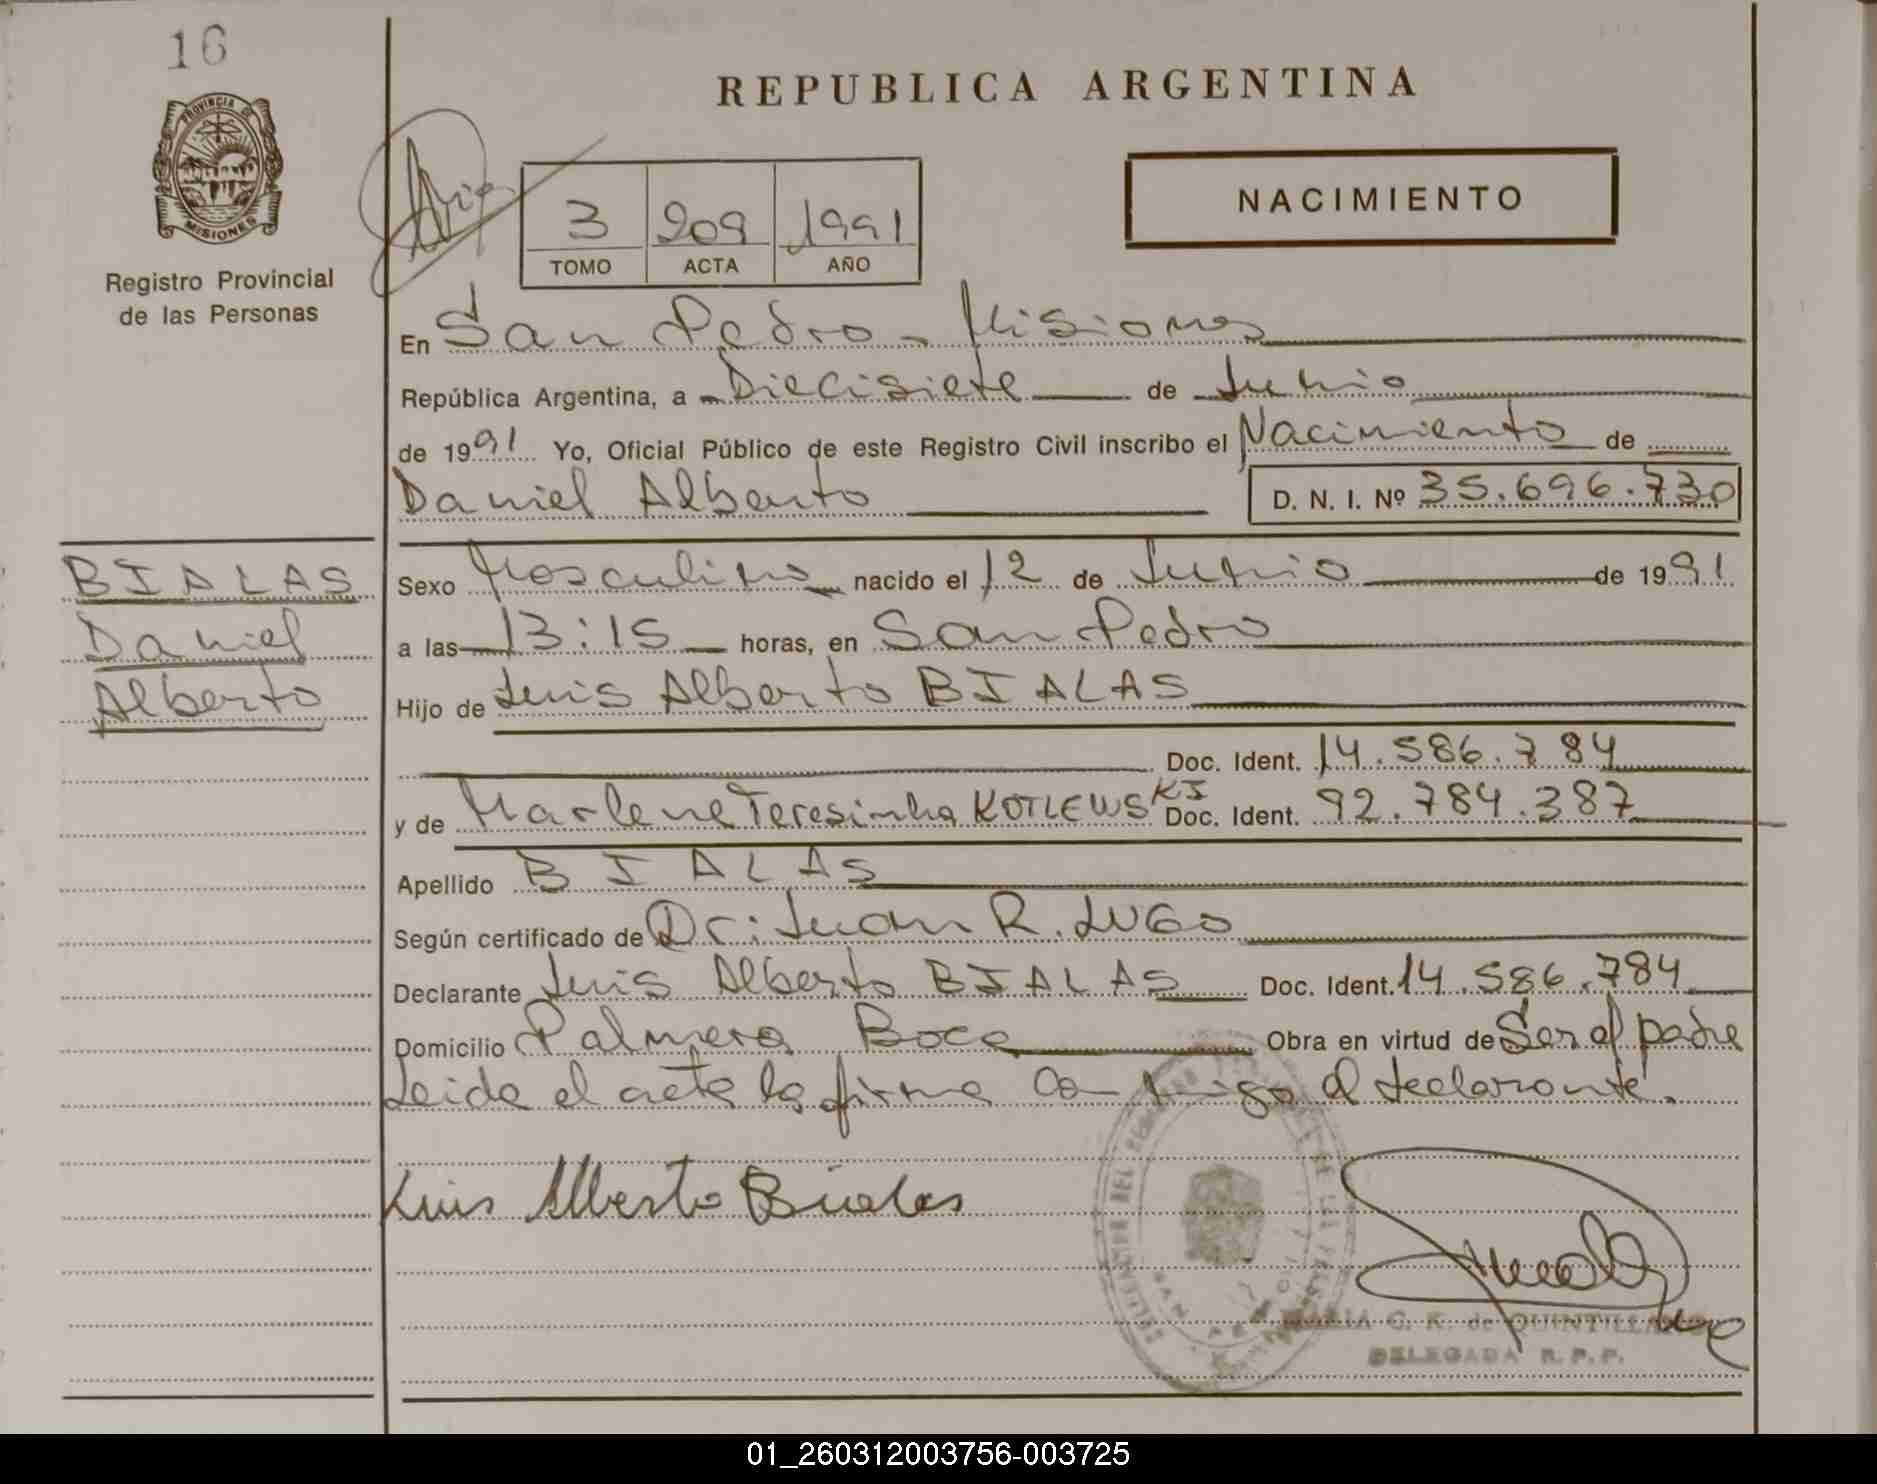 16
REPUBLICA ARGENTINA
PROVINCIA DE
MISIONES
Registro Provincial
de las Personas
3 209 1991
TOMO ACTA AÑO
NACIMIENTO
En San Pedro - Misiones
República Argentina, a Diecisiete de Junio
de 1991 Yo, Oficial Público de este Registro Civil inscribo el Nacimiento de
Daniel Alberto D. N. I. Nº 35.696.730
BIALAS
Daniel
Alberto
Sexo Masculino nacido el 12 de Junio de 1991
a las 13:15 horas, en San Pedro
Hijo de Luis Alberto BIALAS
Doc. Ident. 14.586.784
y de Marlene Teresinha KOTLEWSKI Doc. Ident. 92.784.387
Apellido BIALAS
Según certificado de Dr: Juan R. LUGO
Declarante Luis Alberto BIALAS Doc. Ident. 14.586.784
Domicilio Palmera Boca Obra en virtud de Ser el padre
Leida el acta la firma conmigo el declarante.
Luis Alberto Bialas
MARIA G. K. de QUINTILLAN
DELEGADA R. P. P.
01_260312003756-003725